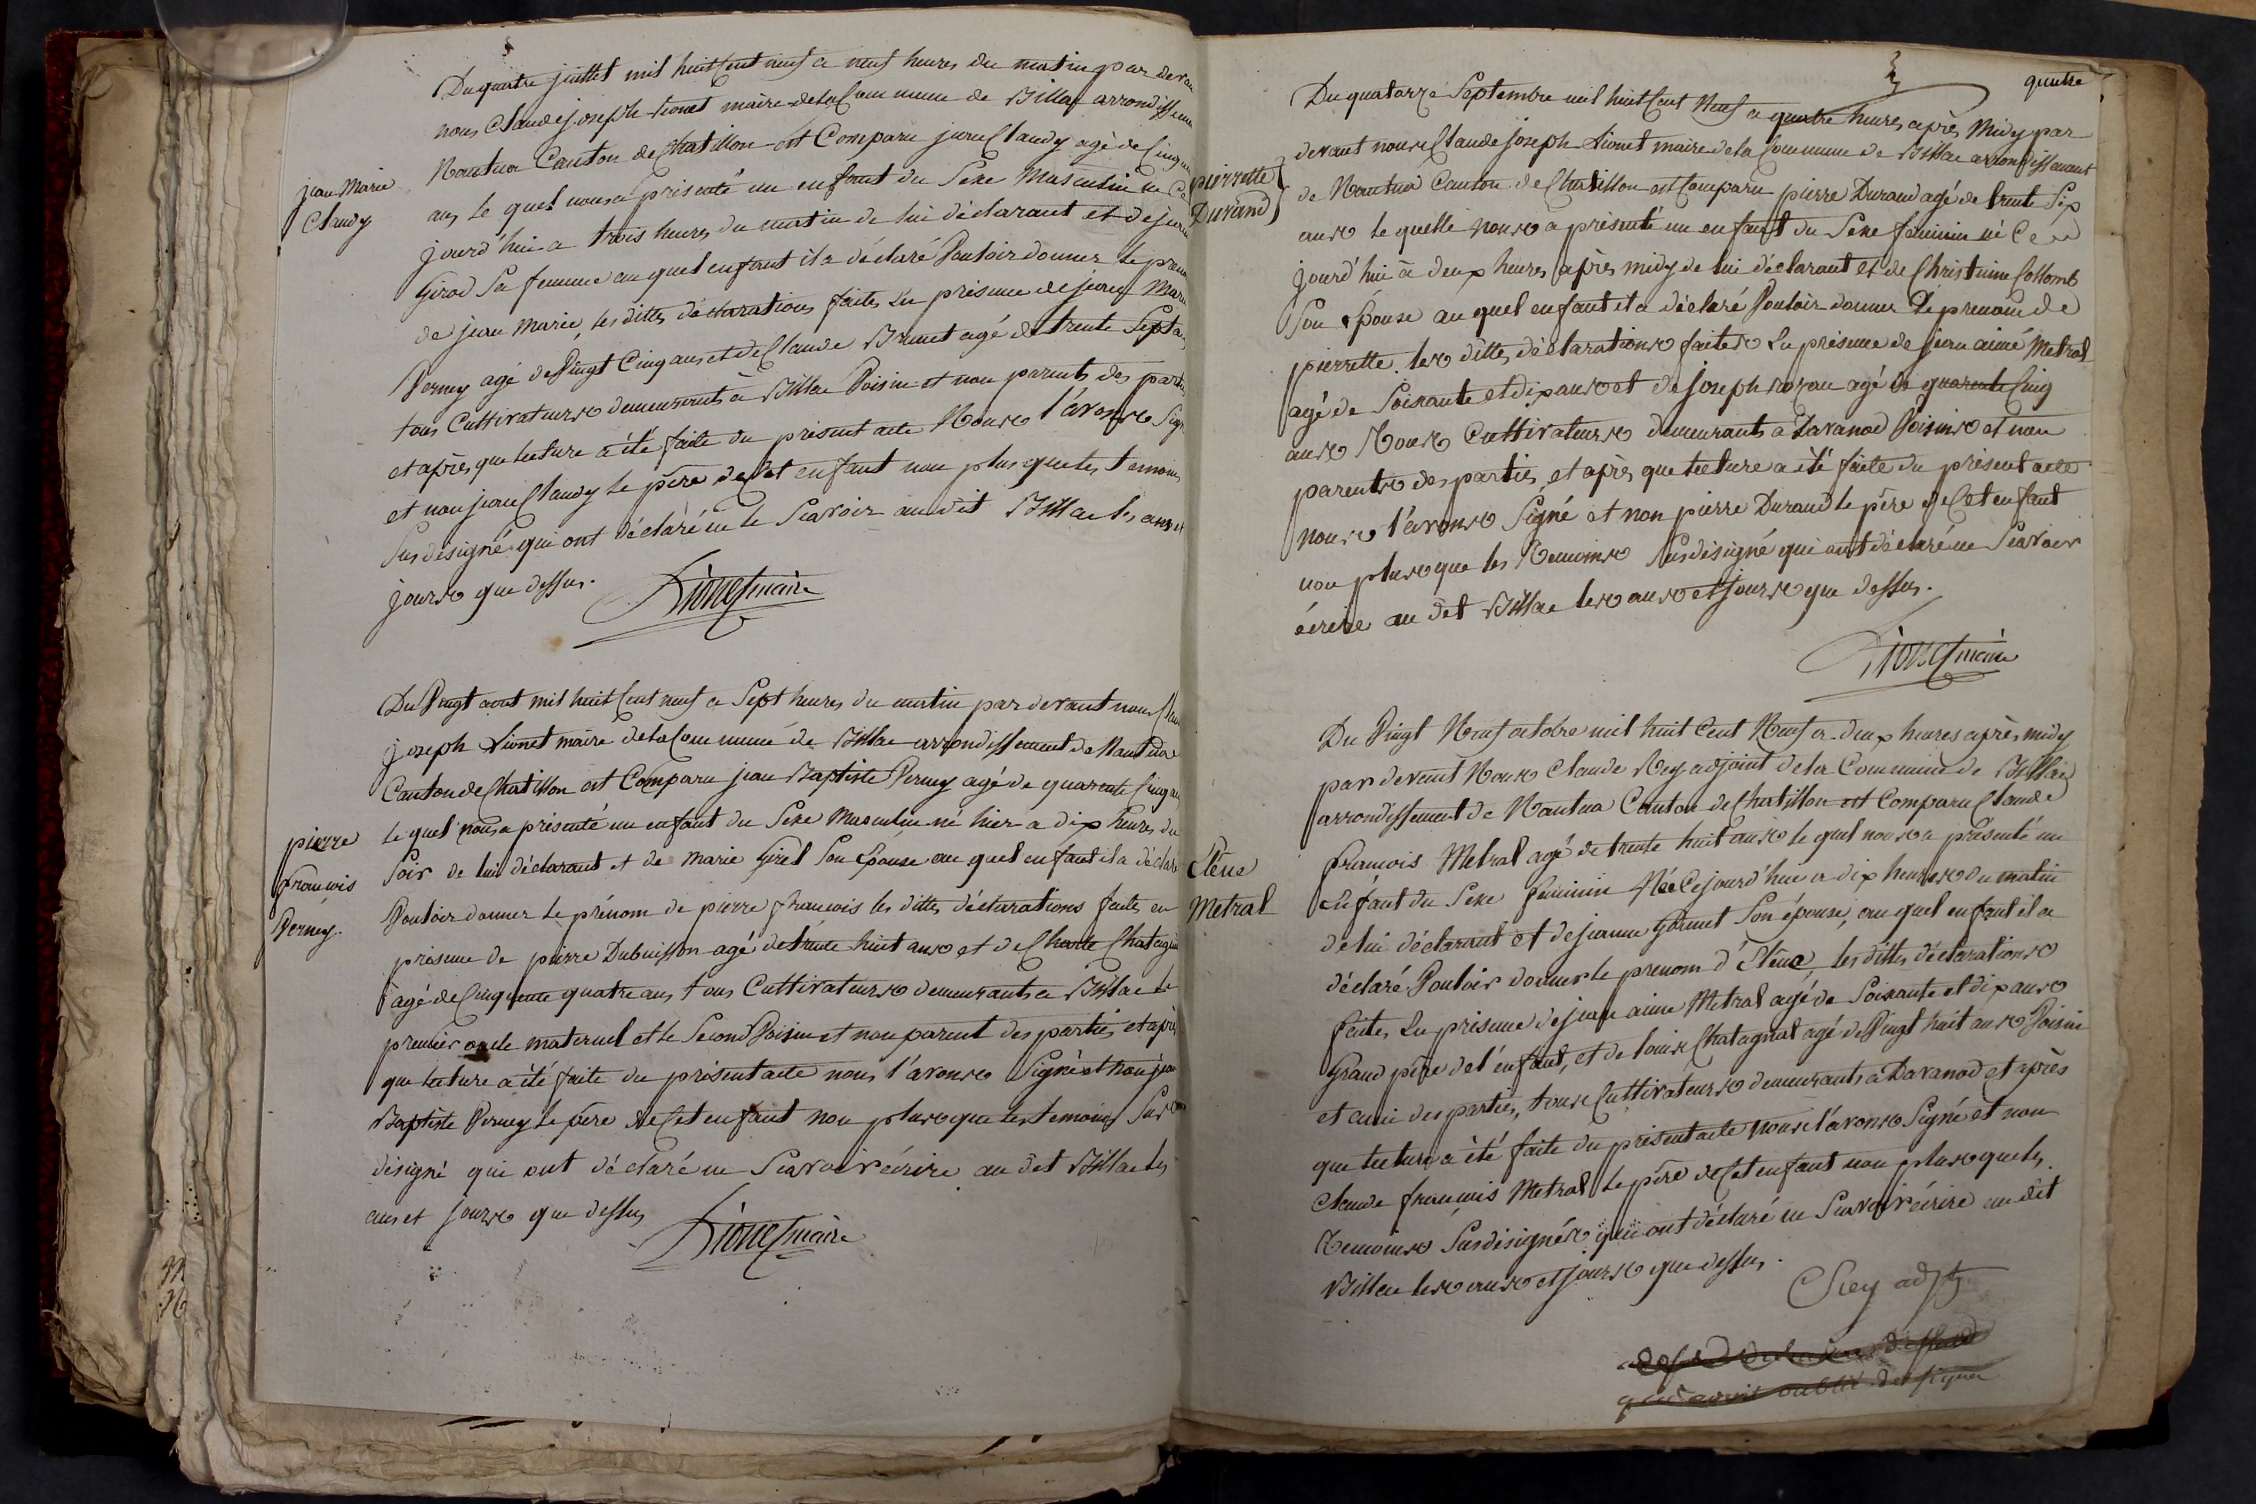 Du quatre juillet mil huit Cent neuf a neuf heures du matin par devan
nous Claude joseph Lionet maire de la Commune de Billac arrondisseme
Nantua Canton de Chatillon est Comparu jean Claudy agé de Cinqua
jean Marie
Claudy
ans le quel nous a présenté un enfant du Sexe Masculin né Ce
jourd'hui a trois heures du matin de lui déclarant et de jean
Girod Sa femme au quel enfant il a déclaré Vouloir donner le pren
de jean Marie, les dittes déclarations faites En présence de jean Mari
Perney agé de Vingt Cinq ans et de Claude Brunet agé de trente Sept a
tous Cultivateurs demeurants à Billac Voisin et non parents des partie
et après que lecture a été faite du présent acte Nous l'avons Sign
et non jean Claudy le père de Cet enfant non plus que les temoins
Susdésigné qui ont déclaré ne le Scavoir au dit Billac les ans et
jours que dessus.
Lionet maire
Du Vingt aout mil huit Cent neuf a Sept heures du matin par devant nous Clau
joseph Lionet maire de la Commune de Billac arrondissement de Nantua
Canton de Chatillon est Comparu jean Baptiste Perney agé de quarente Cinq an
pierre
francois
Perney.
le quel nous a présenté un enfant du Sexe Masculin né hier a dix heures du
Soir de lui déclarant et de marie Girel Son Epouse au quel enfant il a déclaré
Vouloir donner le prénom de pierre francois les dittes déclarations faites en
présence de pierre Dubuisson agé de trente huit ans et de Charle Chatagn
agé de Cinquente quatre ans tous Cultivateurs demeurants a Billac le
premier oncle maternel et le Second Voisin et non parent des parties et aprè
que lecture a été faite du présent acte nous l'avons Signé et non jean
Baptiste Perney le père de Cet enfant non plus que les temoins Sus
désigné qui ont déclaré ne Scavoir écrire au dit Billac les
ans et jours que dessus
Lionet maire
quatre
Du quatorze Septembre mil huit Cent Neuf a quatre heures après Midy par
devant nous Claude joseph Lionet maire de la Commune de Billac arrondissement
pierrette
Durand
de Nantua Canton de Chatillon est Comparu pierre Durand agé de trente Six
ans le quelle nous a présenté un enfant du Sexe feminin né Ce
jourd'hui à deux heures après midy de lui déclarant et de Christinne Collomb
Son épouse au quel enfant il a déclaré Vouloir donner Le prenom de
pierrette. les dittes déclarations faites En présence de jean aimé Metral
agé de Soixante et dix ans et de joseph agé de quarente Cinq
ans Tous Cultivateurs demeurants a Davanod Voisins et non
parents des parties, et après que lecture a été faite du présent acte
nous l'avons Signé et non pierre Durand le père de Cet enfant
non plus que les Temoins Susdésigné qui ont déclaré ne Scavoir
écrire au dit Billac les ans et jours que dessus.
Lionet maire
Du Vingt Neuf octobre mil huit Cent Neuf a deux heures après midy
par devant Nous Claude Rey adjoint de la Commune de Billac
arrondissement de Nantua Canton de Chatillon est Comparu Claude
Elene
Metral
francois Metral agé de trente huit ans le quel nous a présenté un
Enfant du Sexe Feminin Née Cejourd'hui a dix heures du matin
de lui déclarant et de jeanne Gormet Son épouse, au quel enfant il a
déclaré Vouloir donner le prenom d'Elene, les dittes déclarations
faites En présence de jean aime Metral agé de Soixante et dix ans
Grand père de l'enfant, et de louis Chatagnat agé de Vingt huit ans Voisin
et ami des parties, tous Cultivateurs demeurants a Davanod et après
que lecture a été faite du présent acte nous l'avons Signé et non
Claude francois Metral le père de Cet enfant non plus que les
Temoins Susdésignés qui ont déclaré ne Scavoir écrire au dit
Billac les ans et jours que dessus.
C Rey adjt